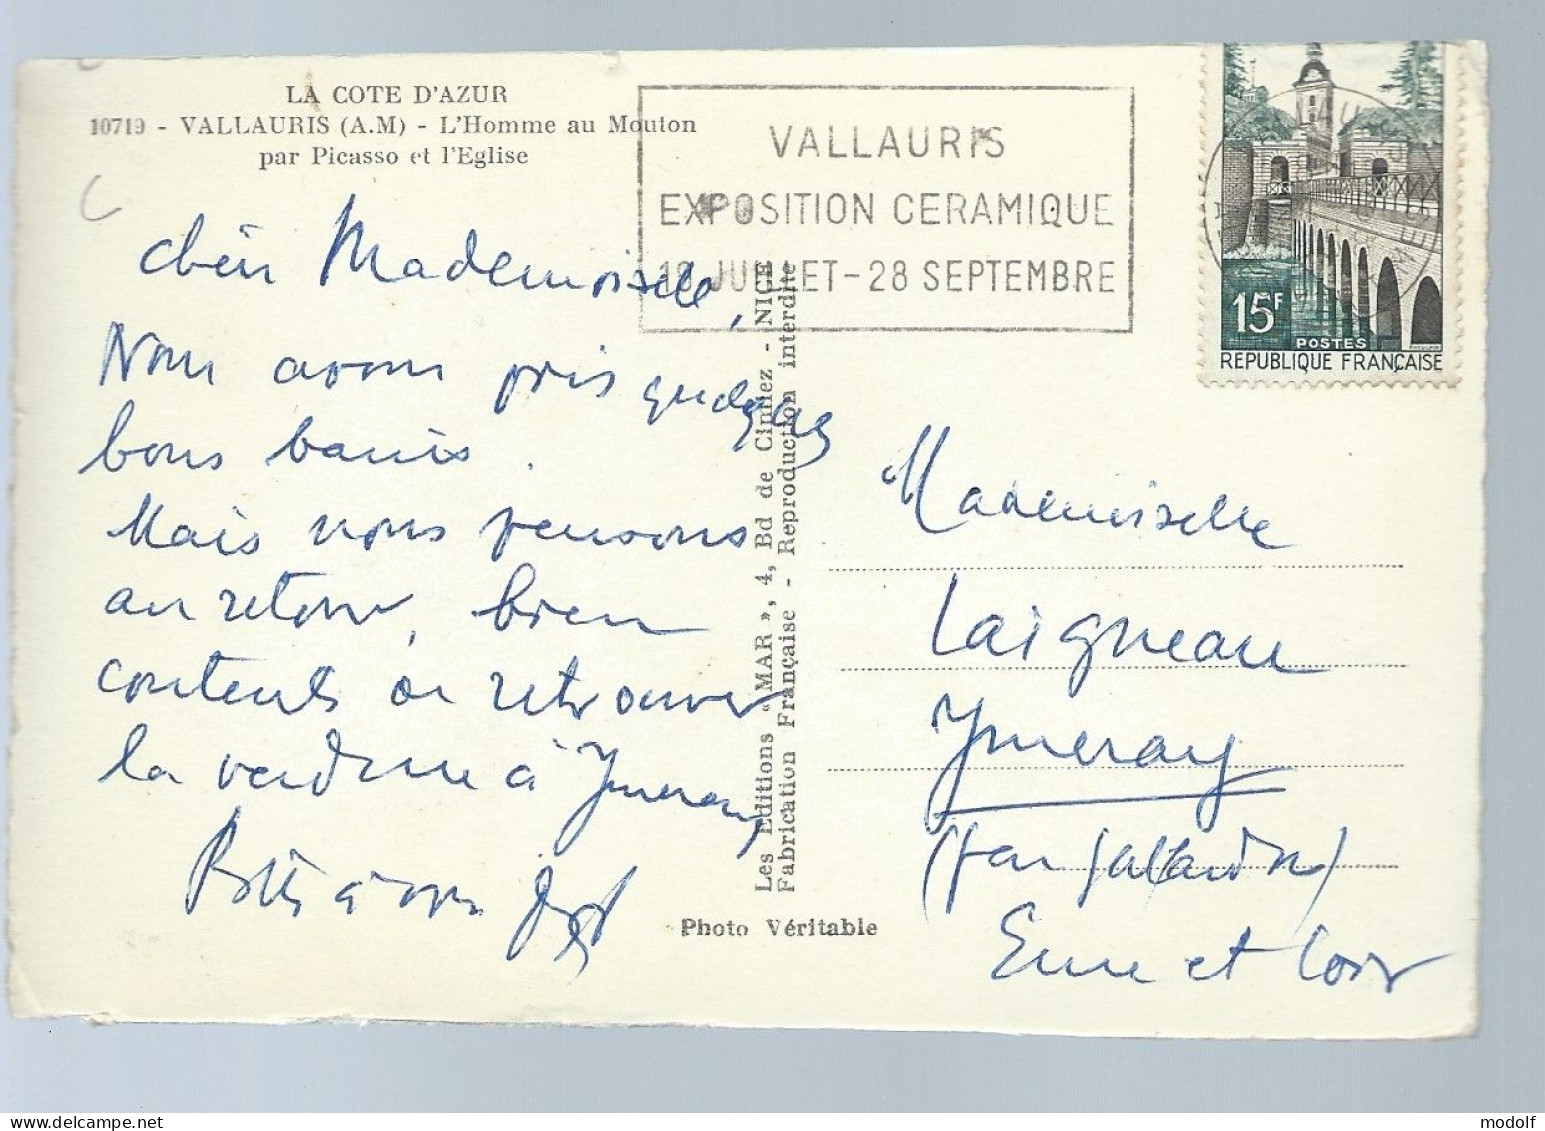 LA COTE D'AZUR
10719 - VALLAURIS (A.M) - L'Homme au Mouton
par Picasso et l'Eglise
VALLAURIS
EXPOSITION CERAMIQUE
JUILLET - 28 SEPTEMBRE
15F
POSTES
REPUBLIQUE FRANÇAISE
chère Mademoiselle,
Nous avons pris quelques
bons bains.
Mais nous pensons
au retour, bien
contents de retrouver
la verdure à Ymeray
à vous
Les Editions « MAR », 4, Bd de Cimiez - NICE
Fabrication Française - Reproduction interdite
Photo Véritable
Mademoiselle
Laigneau
Ymeray
(par Gallardon)
Eure et Loir
modolf